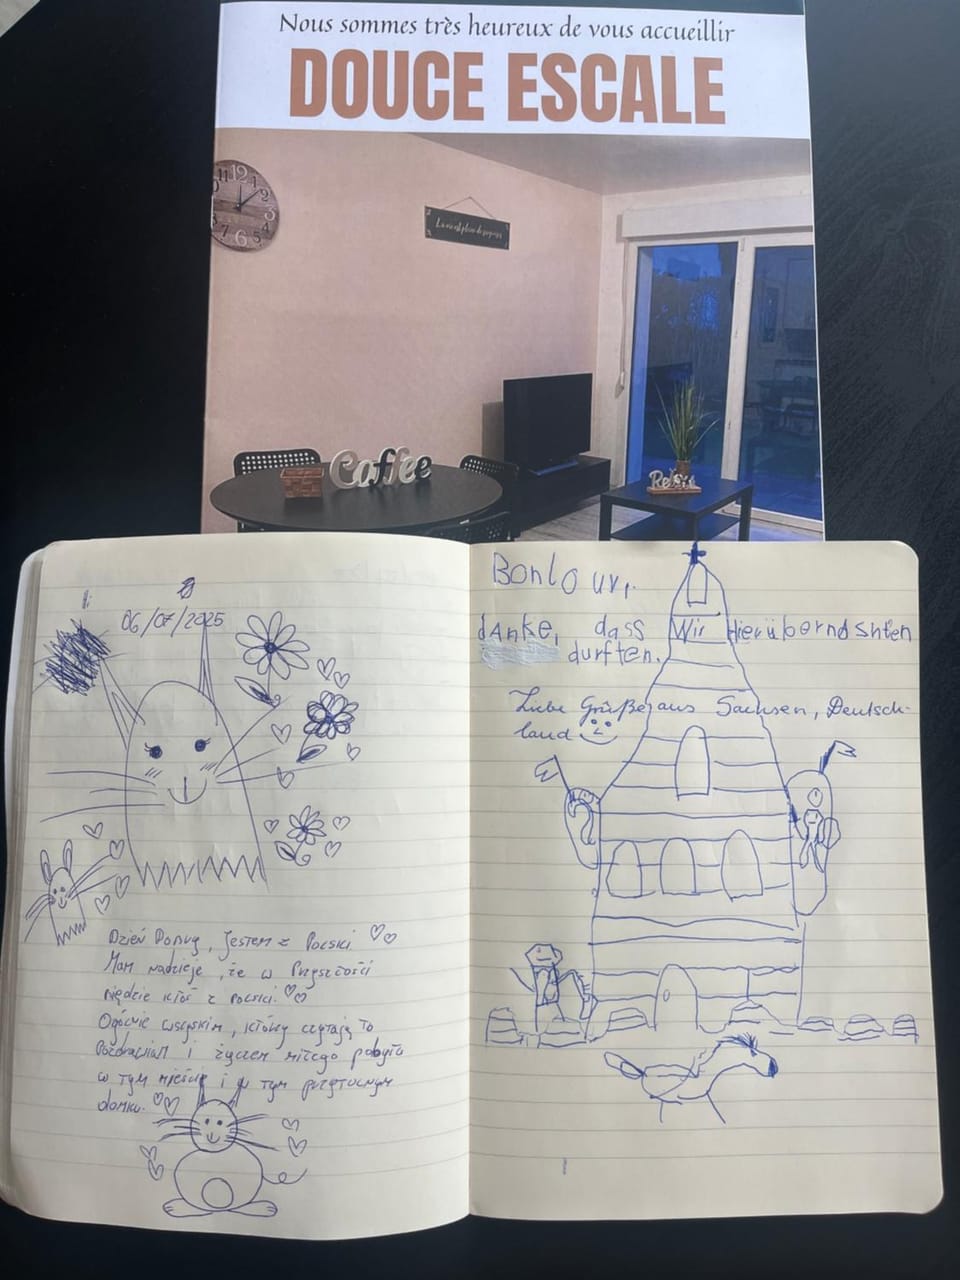 Nous sommes très heureux de vous accueillir
DOUCE ESCALE
12
11
1
2
3
4
5
6
Coffee
Relax
06/07/2025
Dzień Dobry, Jestem z Polski
Mam nadzieje, że w Przyszłości
będzie ktoś z polski.
Ogólnie wszyskim, którzy czytają to
Pozdrawiam i życzem miłego pobytu
w tym mieście i w tym przytulnym
domku.
Bonlour,
dAnke, dass Wir Hierübernashten
durften.
Liebe Grüße aus Sachsen, Deutsch-
land